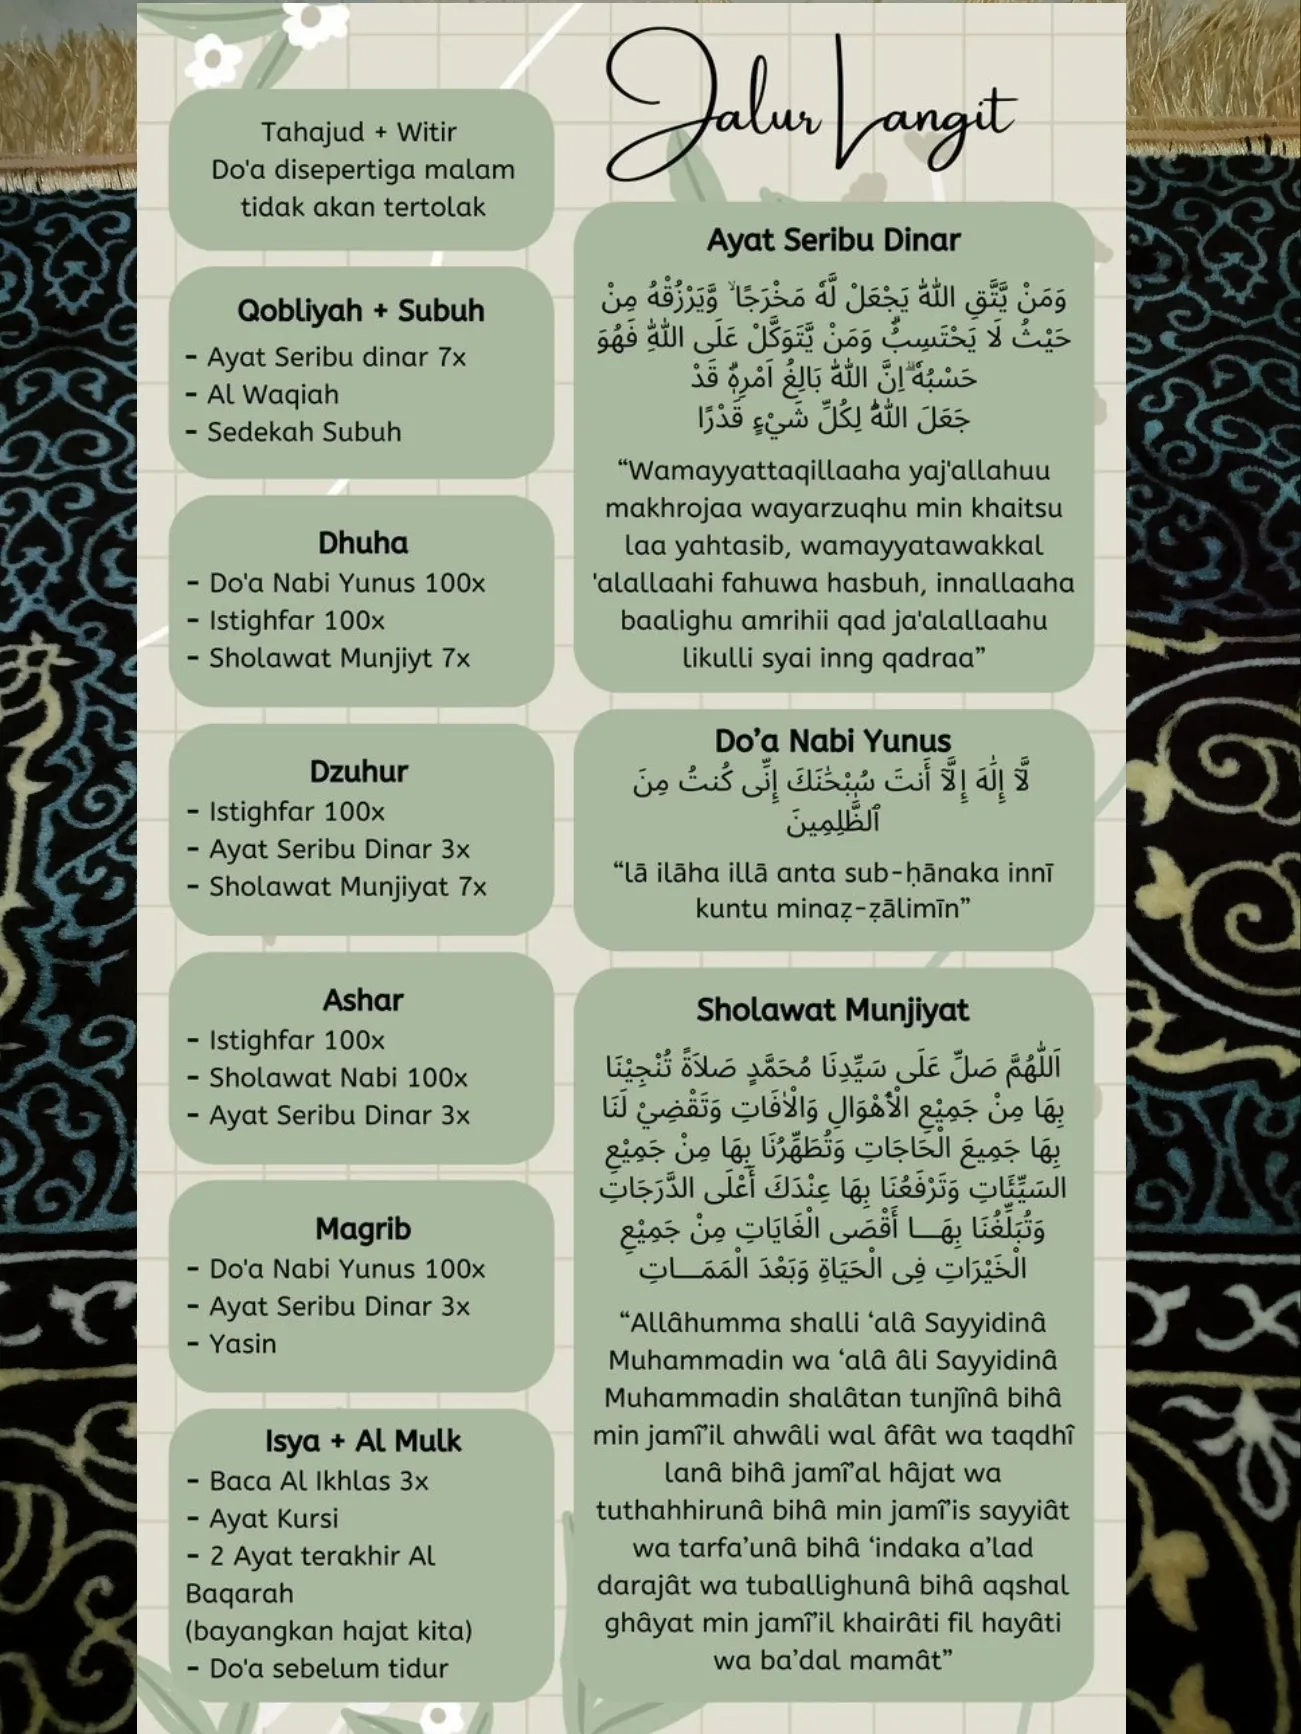 Jalur Langit
Tahajud + Witir
Do'a disepertiga malam
tidak akan tertolak
Qobliyah + Subuh
- Ayat Seribu dinar 7x
- Al Waqiah
- Sedekah Subuh
Dhuha
- Do'a Nabi Yunus 100x
- Istighfar 100x
- Sholawat Munjiyt 7x
Dzuhur
- Istighfar 100x
- Ayat Seribu Dinar 3x
- Sholawat Munjiyat 7x
Ashar
- Istighfar 100x
- Sholawat Nabi 100x
- Ayat Seribu Dinar 3x
Magrib
- Do'a Nabi Yunus 100x
- Ayat Seribu Dinar 3x
- Yasin
Isya + Al Mulk
- Baca Al Ikhlas 3x
- Ayat Kursi
- 2 Ayat terakhir Al
Baqarah
(bayangkan hajat kita)
- Do'a sebelum tidur
Ayat Seribu Dinar
وَمَنْ يَّتَّقِ اللّٰهَ يَجْعَلْ لَّهٗ مَخْرَجًا ۙ وَّيَرْزُقْهُ مِنْ
حَيْثُ لَا يَحْتَسِبُۗ وَمَنْ يَّتَوَكَّلْ عَلَى اللّٰهِ فَهُوَ
حَسْبُهٗ ۗاِنَّ اللّٰهَ بَالِغُ اَمْرِهٖۗ قَدْ
جَعَلَ اللّٰهُ لِكُلِّ شَيْءٍ قَدْرًا
“Wamayyattaqillaaha yaj'allahuu
makhrojaa wayarzuqhu min khaitsu
laa yahtasib, wamayyatawakkal
'alallaahi fahuwa hasbuh, innallaaha
baalighu amrihii qad ja'alallaahu
likulli syai inng qadraa”
Do’a Nabi Yunus
لَّآ إِلَٰهَ إِلَّآ أَنتَ سُبْحَٰنَكَ إِنِّى كُنتُ مِنَ
ٱلظَّٰلِمِينَ
“lā ilāha illā anta sub-ḥānaka innī
kuntu minaẓ-ẓālimīn”
Sholawat Munjiyat
اَللّٰهُمَّ صَلِّ عَلَى سَيِّدِنَا مُحَمَّدٍ صَلاَةً تُنْجِيْنَا
بِهَا مِنْ جَمِيْعِ الْأَهْوَالِ وَالْاٰفَاتِ وَتَقْضِيْ لَنَا
بِهَا جَمِيعَ الْحَاجَاتِ وَتُطَهِّرُنَا بِهَا مِنْ جَمِيْعِ
السَيِّئَاتِ وَتَرْفَعُنَا بِهَا عِنْدَكَ أَعْلَى الدَّرَجَاتِ
وَتُبَلِّغُنَا بِهَـــا أَقْصَى الْغَايَاتِ مِنْ جَمِيْعِ
الْخَيْرَاتِ فِى الْحَيَاةِ وَبَعْدَ الْمَمَـــاتِ
“Allâhumma shalli ‘alâ Sayyidinâ
Muhammadin wa ‘alâ âli Sayyidinâ
Muhammadin shalâtan tunjînâ bihâ
min jamî’il ahwâli wal âfât wa taqdhî
lanâ bihâ jamî’al hâjat wa
tuthahhirunâ bihâ min jamî’is sayyiât
wa tarfa’unâ bihâ ‘indaka a’lad
darajât wa tuballighunâ bihâ aqshal
ghâyat min jamî’il khairâti fil hayâti
wa ba’dal mamât”